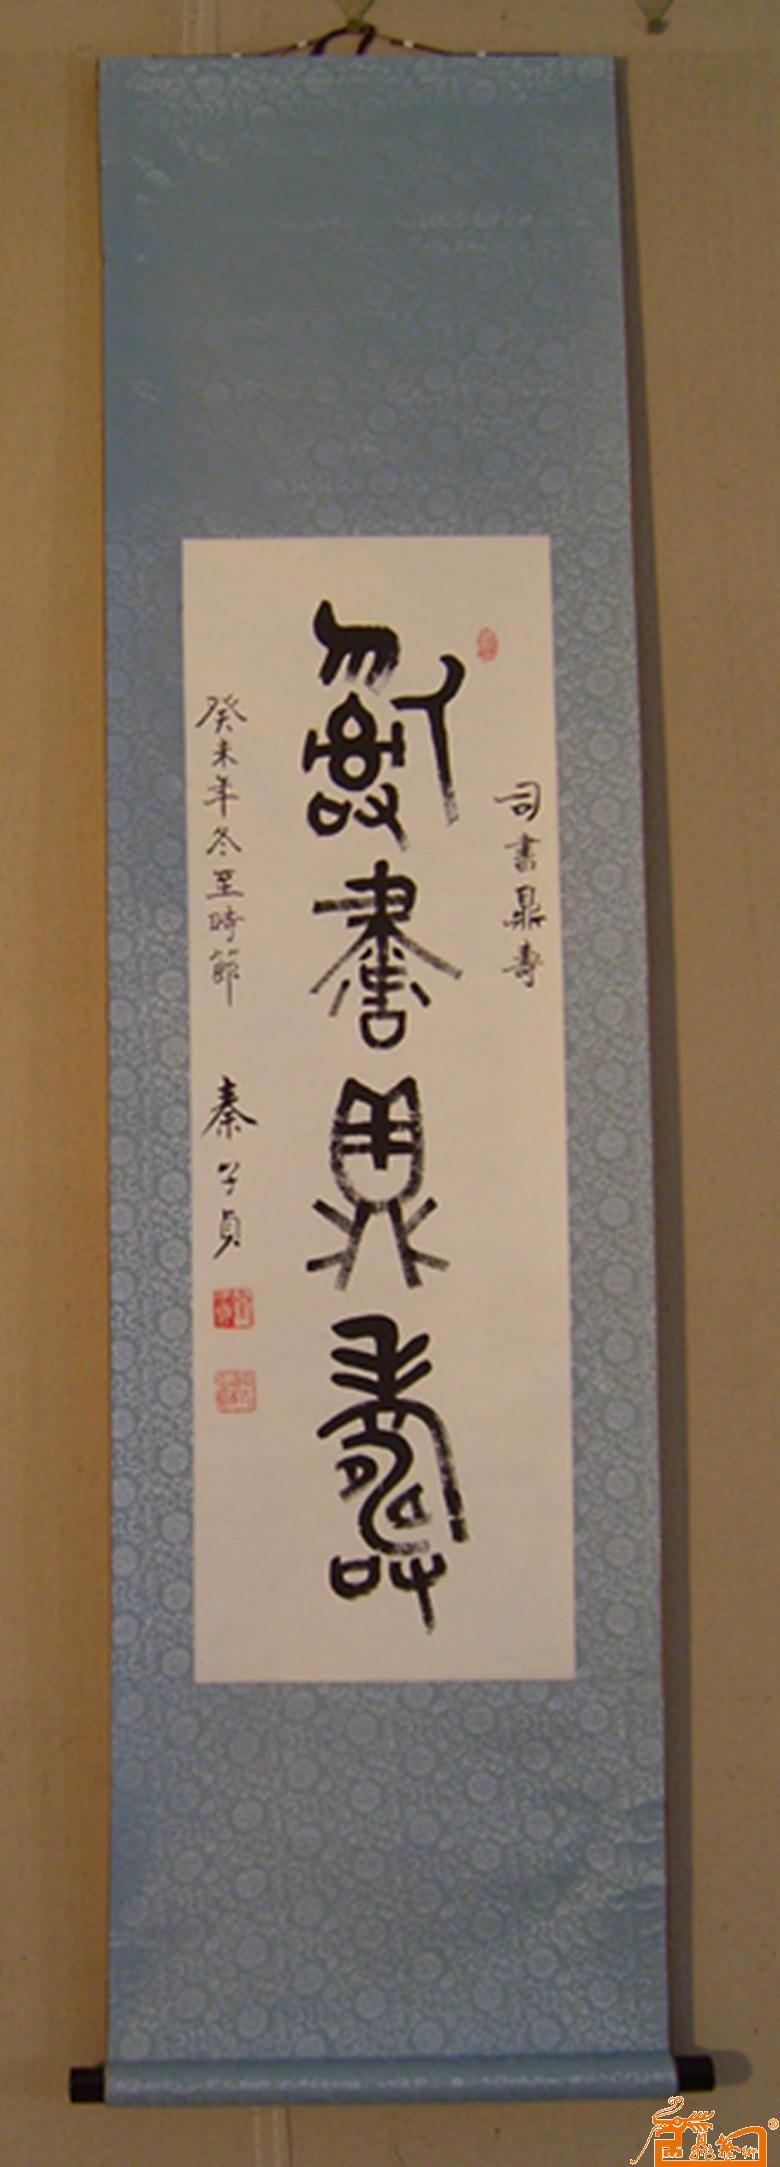 司書鼎壽
司書鼎壽
癸未年冬至時節
秦子貞